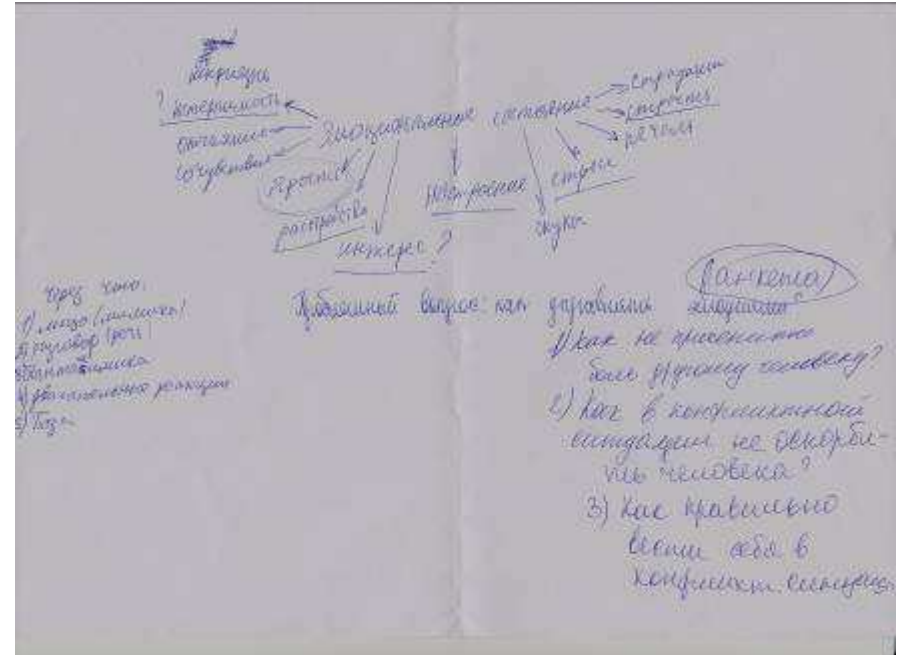 ? нетерпимость
отчаяние
сочувствие
Эмоциональные состояния
страдания
страх
печаль
Ярость
расстройство
интерес ?
настроение
стресс
скука
Через что:
1) лицо (мимика)
2) разговор (речь)
3) пантомимика
4) двигательные реакции
5) Поза
(анкета)
Проблемный вопрос: как управлять эмоциями?
1) Как не причинить
боль другому человеку?
2) Как в конфликтной
ситуации не оскорби-
ть человека?
3) Как правильно
вести себя в
конфликт. ситуации